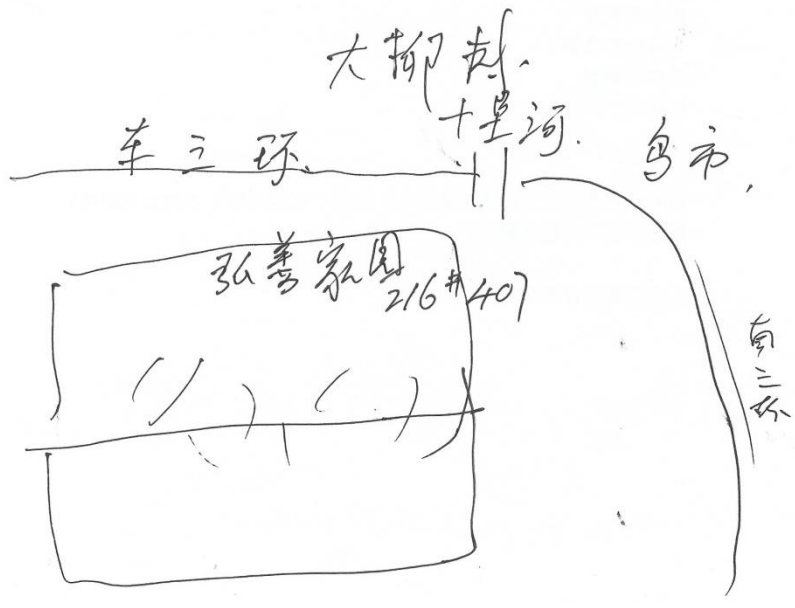 大柳树
十里河
东三环
鸟市
弘善家园
216#407
南三环